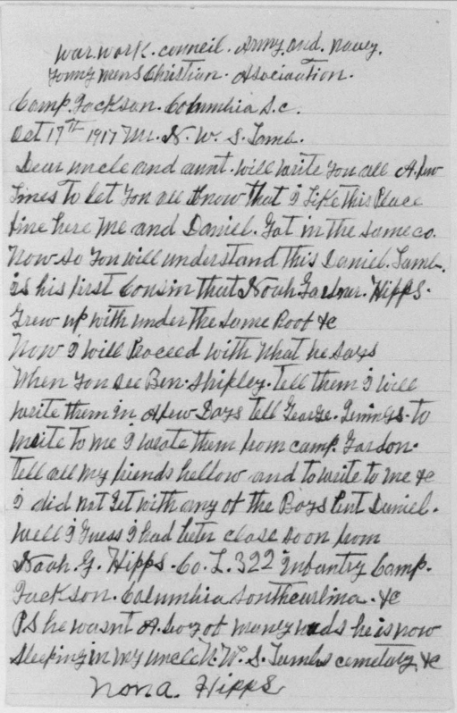 War. work. council. Army. and. navey.
Yonng mens Christian. Asociaution.
Camp. Jackson. Columbia S.C.
Oct 17th 1917 Mr. N. W. S. Lamb.
Dear uncle and aunt. will write you all A few
lines to let you all know that I like this Place
fine here Me and Daniel. Got in the same co.
Now so you will understand this Daniel. Lamb.
is his first Cousin that Noah Hipps.
Grew up with under the same Roof &c
Now I will Proceed with what he says
When you see Ben. Shipley. tell them I will
write them in A few Days tell George. to
write to me I wrote them from camp.
tell all my friends hellow and to write to me &c
I did not Get with any of the Boys but Daniel.
well I Guess I had beter close soon from
Noah G. Hipps. Co. L. 322 infantry Camp.
Jackson. Columbia &c
PS he wasnt A boy of many words he is now
sleeping in my uncle N. W. S. Lambs cemetary &c
Nona. Hipps